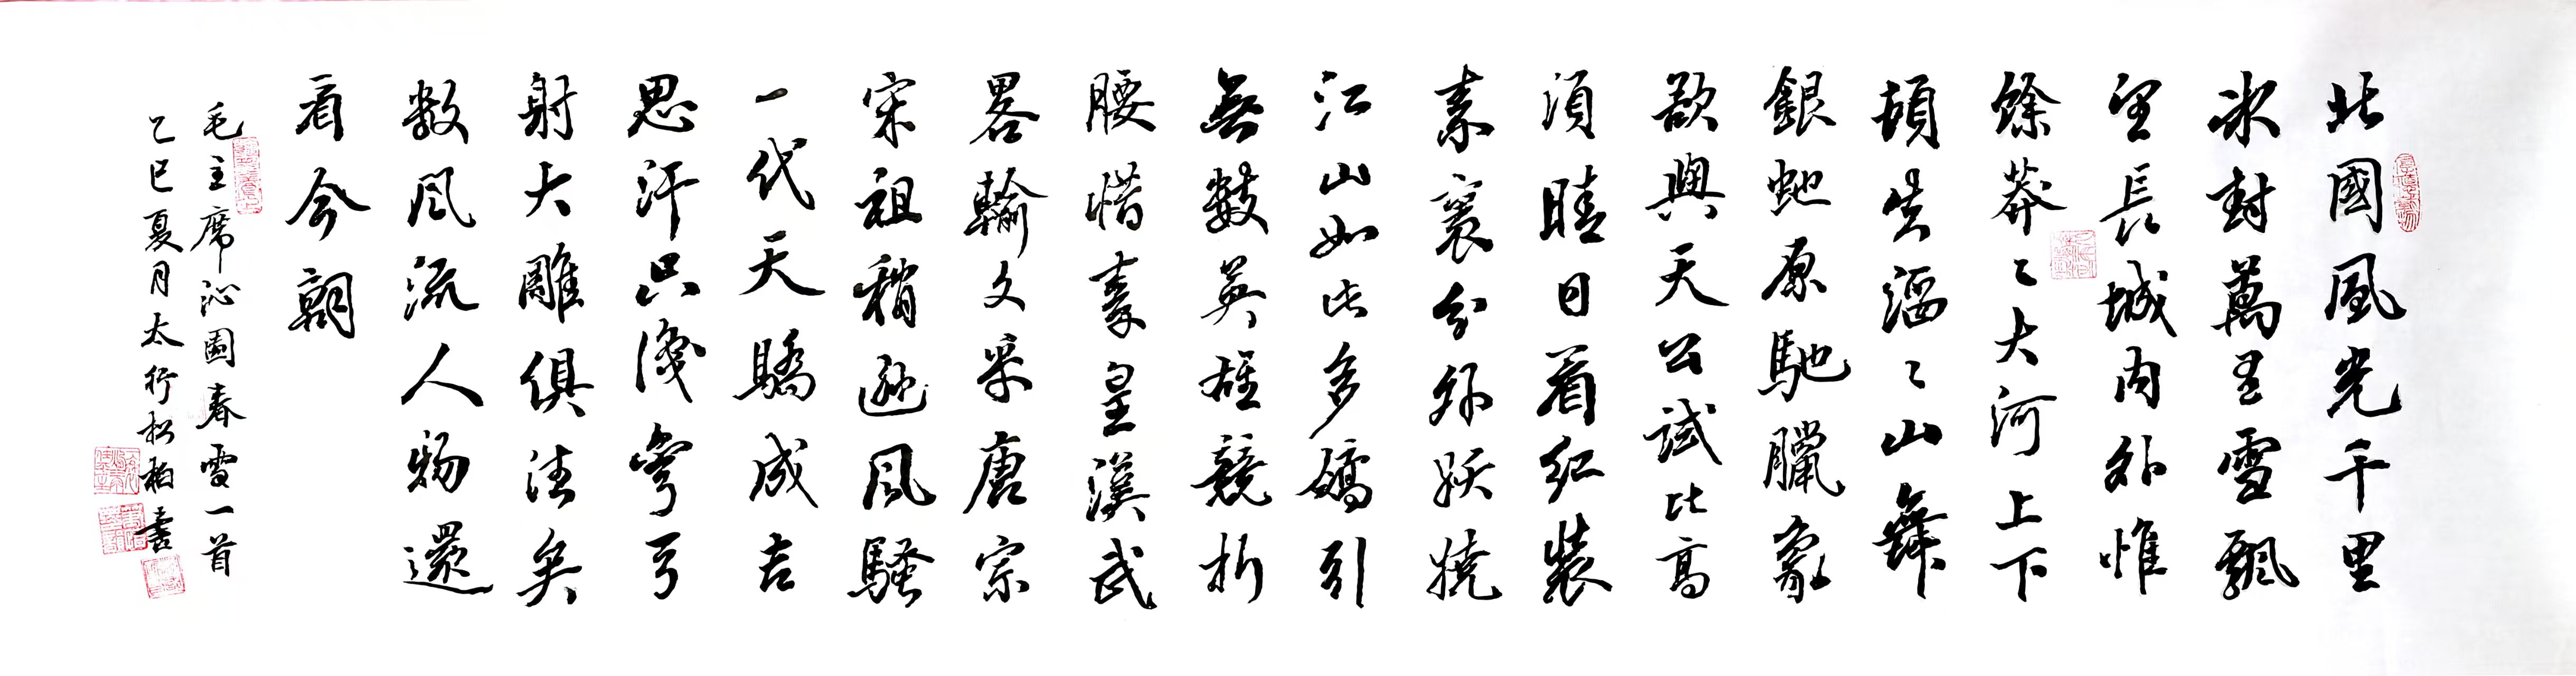 北國風光千里
冰封萬里雪飄
望長城内外惟
餘莽〻大河上下
頓失滔〻山舞
銀蛇原馳臘象
欲與天公試比高
須晴日看紅裝
素裹分外妖嬈
江山如此多嬌引
無數英雄競折
腰惜秦皇漢武
畧輸文采唐宗
宋祖稍遜風騷
一代天驕成吉
思汗只識彎弓
射大雕俱往矣
数風流人物還
看今朝
毛主席沁園春雪一首
乙巳夏月太行松柏書